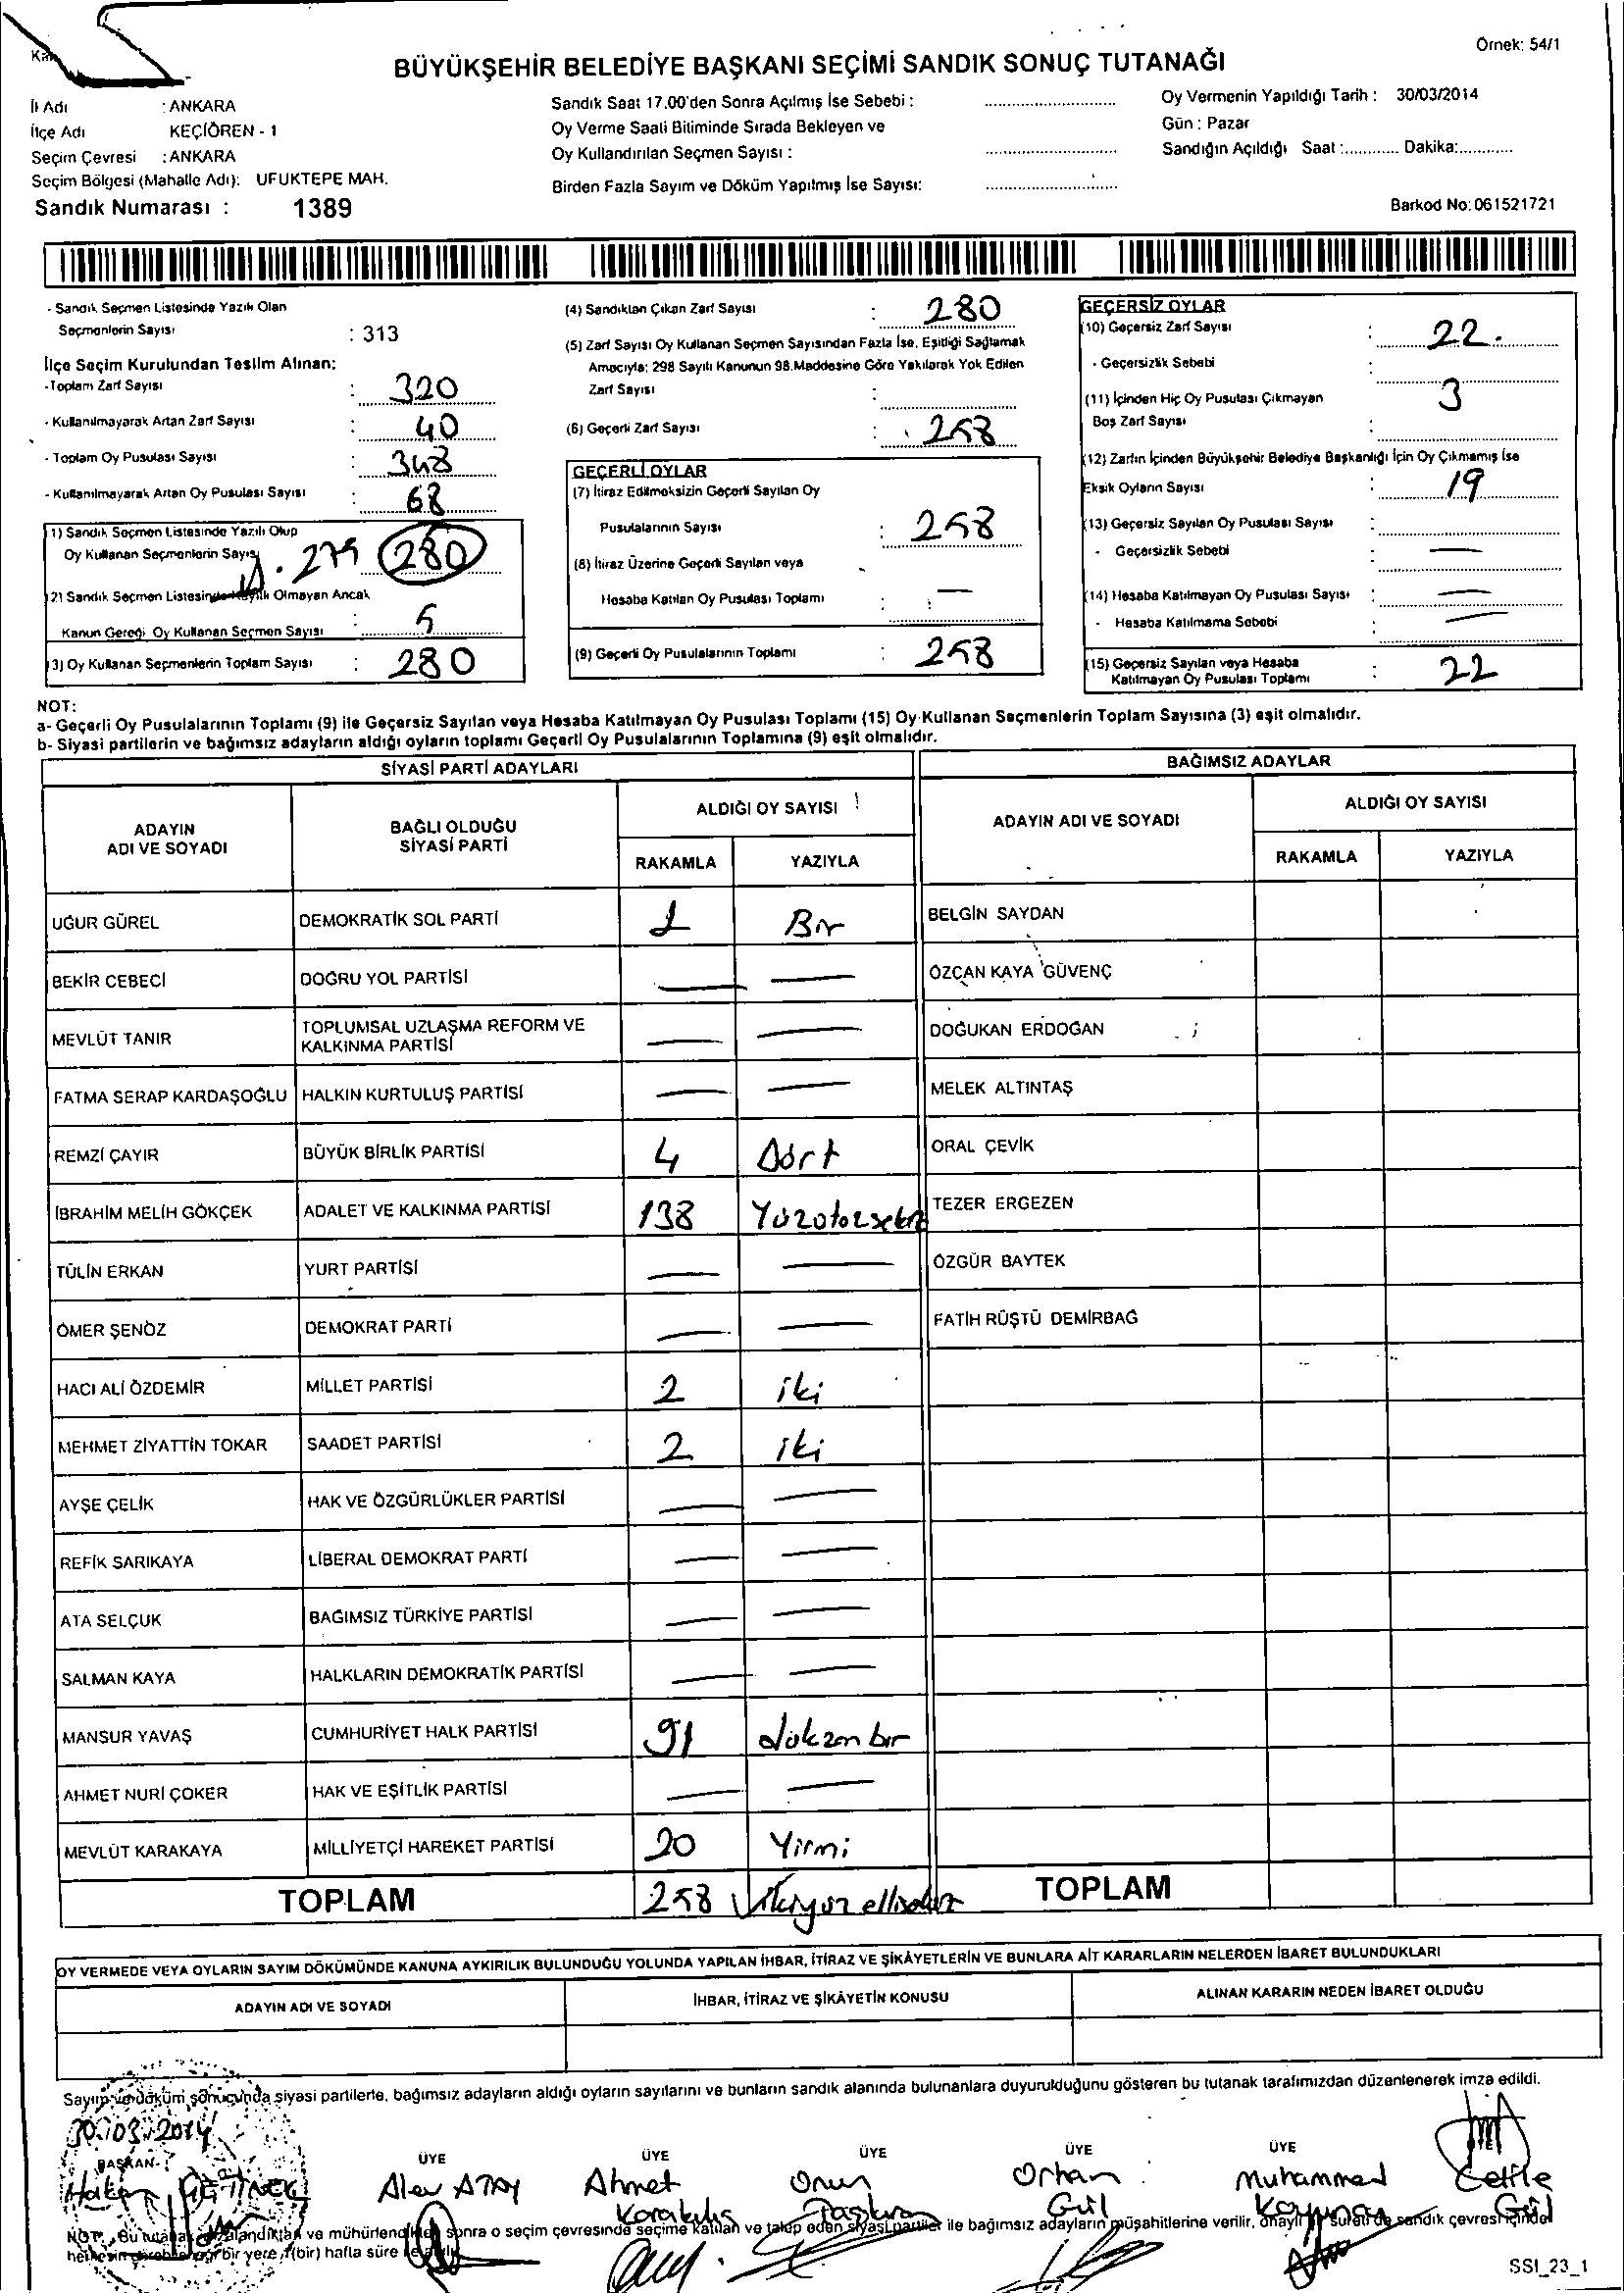 Örnek: 54/1
BÜYÜKŞEHİR BELEDİYE BAŞKANI SEÇİMİ SANDIK SONUÇ TUTANAĞI
İl Adı : ANKARA
İlçe Adı KEÇİÖREN - 1
Seçim Çevresi : ANKARA
Seçim Bölgesi (Mahalle Adı): UFUKTEPE MAH.
Sandık Numarası : 1389
Sandık Saat 17.00'den Sonra Açılmış İse Sebebi :
Oy Verme Saati Bitiminde Sırada Bekleyen ve
Oy Kullandırılan Seçmen Sayısı :
Birden Fazla Sayım ve Döküm Yapılmış İse Sayısı:
Oy Vermenin Yapıldığı Tarih : 30/03/2014
Gün : Pazar
Sandığın Açıldığı Saat :............ Dakika:............
Barkod No: 061521721
- Sandık Seçmen Listesinde Yazılı Olan
Seçmenlerin Sayısı : 313
İlçe Seçim Kurulundan Teslim Alınan:
-Toplam Zarf Sayısı : 320
- Kullanılmayarak Artan Zarf Sayısı : 40
- Toplam Oy Pusulası Sayısı : 348
- Kullanılmayarak Artan Oy Pusulası Sayısı : 68
1) Sandık Seçmen Listesinde Yazılı Olup
Oy Kullanan Seçmenlerin Sayısı 275 280
2) Sandık Seçmen Listesinde Kayıtlı Olmayan Ancak
Kanun Gereği Oy Kullanan Seçmen Sayısı : 5
(3) Oy Kullanan Seçmenlerin Toplam Sayısı : 280
(4) Sandıktan Çıkan Zarf Sayısı : 280
(5) Zarf Sayısı Oy Kullanan Seçmen Sayısından Fazla İse, Eşitliği Sağlamak
Amacıyla; 298 Sayılı Kanunun 98.Maddesine Göre Yakılarak Yok Edilen
Zarf Sayısı :
(6) Geçerli Zarf Sayısı : 258
GEÇERLİ OYLAR
(7) İtiraz Edilmeksizin Geçerli Sayılan Oy
Pusulalarının Sayısı : 258
(8) İtiraz Üzerine Geçerli Sayılan veya
Hesaba Katılan Oy Pusulası Toplamı : —
(9) Geçerli Oy Pusulalarının Toplamı : 258
GEÇERSİZ OYLAR
(10) Geçersiz Zarf Sayısı : 22.
- Geçersizlik Sebebi :
(11) İçinden Hiç Oy Pusulası Çıkmayan 3
Boş Zarf Sayısı :
(12) Zarfın İçinden Büyükşehir Belediye Başkanlığı İçin Oy Çıkmamış İse
Eksik Oyların Sayısı : 19
(13) Geçersiz Sayılan Oy Pusulası Sayısı :
- Geçersizlik Sebebi : —
(14) Hesaba Katılmayan Oy Pusulası Sayısı : —
- Hesaba Katılmama Sebebi : —
(15) Geçersiz Sayılan veya Hesaba
Katılmayan Oy Pusulası Toplamı : 22
NOT:
a- Geçerli Oy Pusulalarının Toplamı (9) ile Geçersiz Sayılan veya Hesaba Katılmayan Oy Pusulası Toplamı (15) Oy Kullanan Seçmenlerin Toplam Sayısına (3) eşit olmalıdır.
b- Siyasi partilerin ve bağımsız adayların aldığı oyların toplamı Geçerli Oy Pusulalarının Toplamına (9) eşit olmalıdır.
SİYASİ PARTİ ADAYLARI
ADAYIN ADI VE SOYADI
BAĞLI OLDUĞU SİYASİ PARTİ
ALDIĞI OY SAYISI
RAKAMLA YAZIYLA
UĞUR GÜREL DEMOKRATİK SOL PARTİ 1 Bir
BEKİR CEBECİ DOĞRU YOL PARTİSİ — —
MEVLÜT TANIR TOPLUMSAL UZLAŞMA REFORM VE KALKINMA PARTİSİ — —
FATMA SERAP KARDAŞOĞLU HALKIN KURTULUŞ PARTİSİ — —
REMZİ ÇAYIR BÜYÜK BİRLİK PARTİSİ 4 Dört
İBRAHİM MELİH GÖKÇEK ADALET VE KALKINMA PARTİSİ 138 Yüzotuzsekiz
TÜLİN ERKAN YURT PARTİSİ — —
ÖMER ŞENÖZ DEMOKRAT PARTİ — —
HACI ALİ ÖZDEMİR MİLLET PARTİSİ 2 iki
MEHMET ZİYATTİN TOKAR SAADET PARTİSİ 2 iki
AYŞE ÇELİK HAK VE ÖZGÜRLÜKLER PARTİSİ — —
REFİK SARIKAYA LİBERAL DEMOKRAT PARTİ — —
ATA SELÇUK BAĞIMSIZ TÜRKİYE PARTİSİ — —
SALMAN KAYA HALKLARIN DEMOKRATİK PARTİSİ — —
MANSUR YAVAŞ CUMHURİYET HALK PARTİSİ 91 doksan bir
AHMET NURİ ÇOKER HAK VE EŞİTLİK PARTİSİ — —
MEVLÜT KARAKAYA MİLLİYETÇİ HAREKET PARTİSİ 20 Yirmi
TOPLAM 258 ikiyüz ellisekiz
BAĞIMSIZ ADAYLAR
ADAYIN ADI VE SOYADI
ALDIĞI OY SAYISI
RAKAMLA YAZIYLA
BELGİN SAYDAN
ÖZCAN KAYA GÜVENÇ
DOĞUKAN ERDOĞAN
MELEK ALTINTAŞ
ORAL ÇEVİK
TEZER ERGEZEN
ÖZGÜR BAYTEK
FATİH RÜŞTÜ DEMİRBAĞ
TOPLAM
OY VERMEDE VEYA OYLARIN SAYIM DÖKÜMÜNDE KANUNA AYKIRILIK BULUNDUĞU YOLUNDA YAPILAN İHBAR, İTİRAZ VE ŞİKÂYETLERİN VE BUNLARA AİT KARARLARIN NELERDEN İBARET BULUNDUKLARI
ADAYIN ADI VE SOYADI İHBAR, İTİRAZ VE ŞİKÂYETİN KONUSU ALINAN KARARIN NEDEN İBARET OLDUĞU
Sayım ve döküm sonucunda siyasi partilerle, bağımsız adayların aldığı oyların sayılarını ve bunların sandık alanında bulunanlara duyurulduğunu gösteren bu tutanak tarafımızdan düzenlenerek imza edildi.
30.03.2014
BAŞKAN ÜYE ÜYE ÜYE ÜYE ÜYE
Hakan Alev ATAY Ahmet Onur Orhan Muhammed
Gül Gül
NOT: Bu tutanak imzalandıktan ve mühürlendikten sonra o seçim çevresinde seçime katılan ve talep eden siyasi partiler ile bağımsız adayların müşahitlerine verilir, onaylı sureti de sandık çevresi içinde
herkesin görebileceği bir yere 1(bir) hafta süre
SSI_23_1